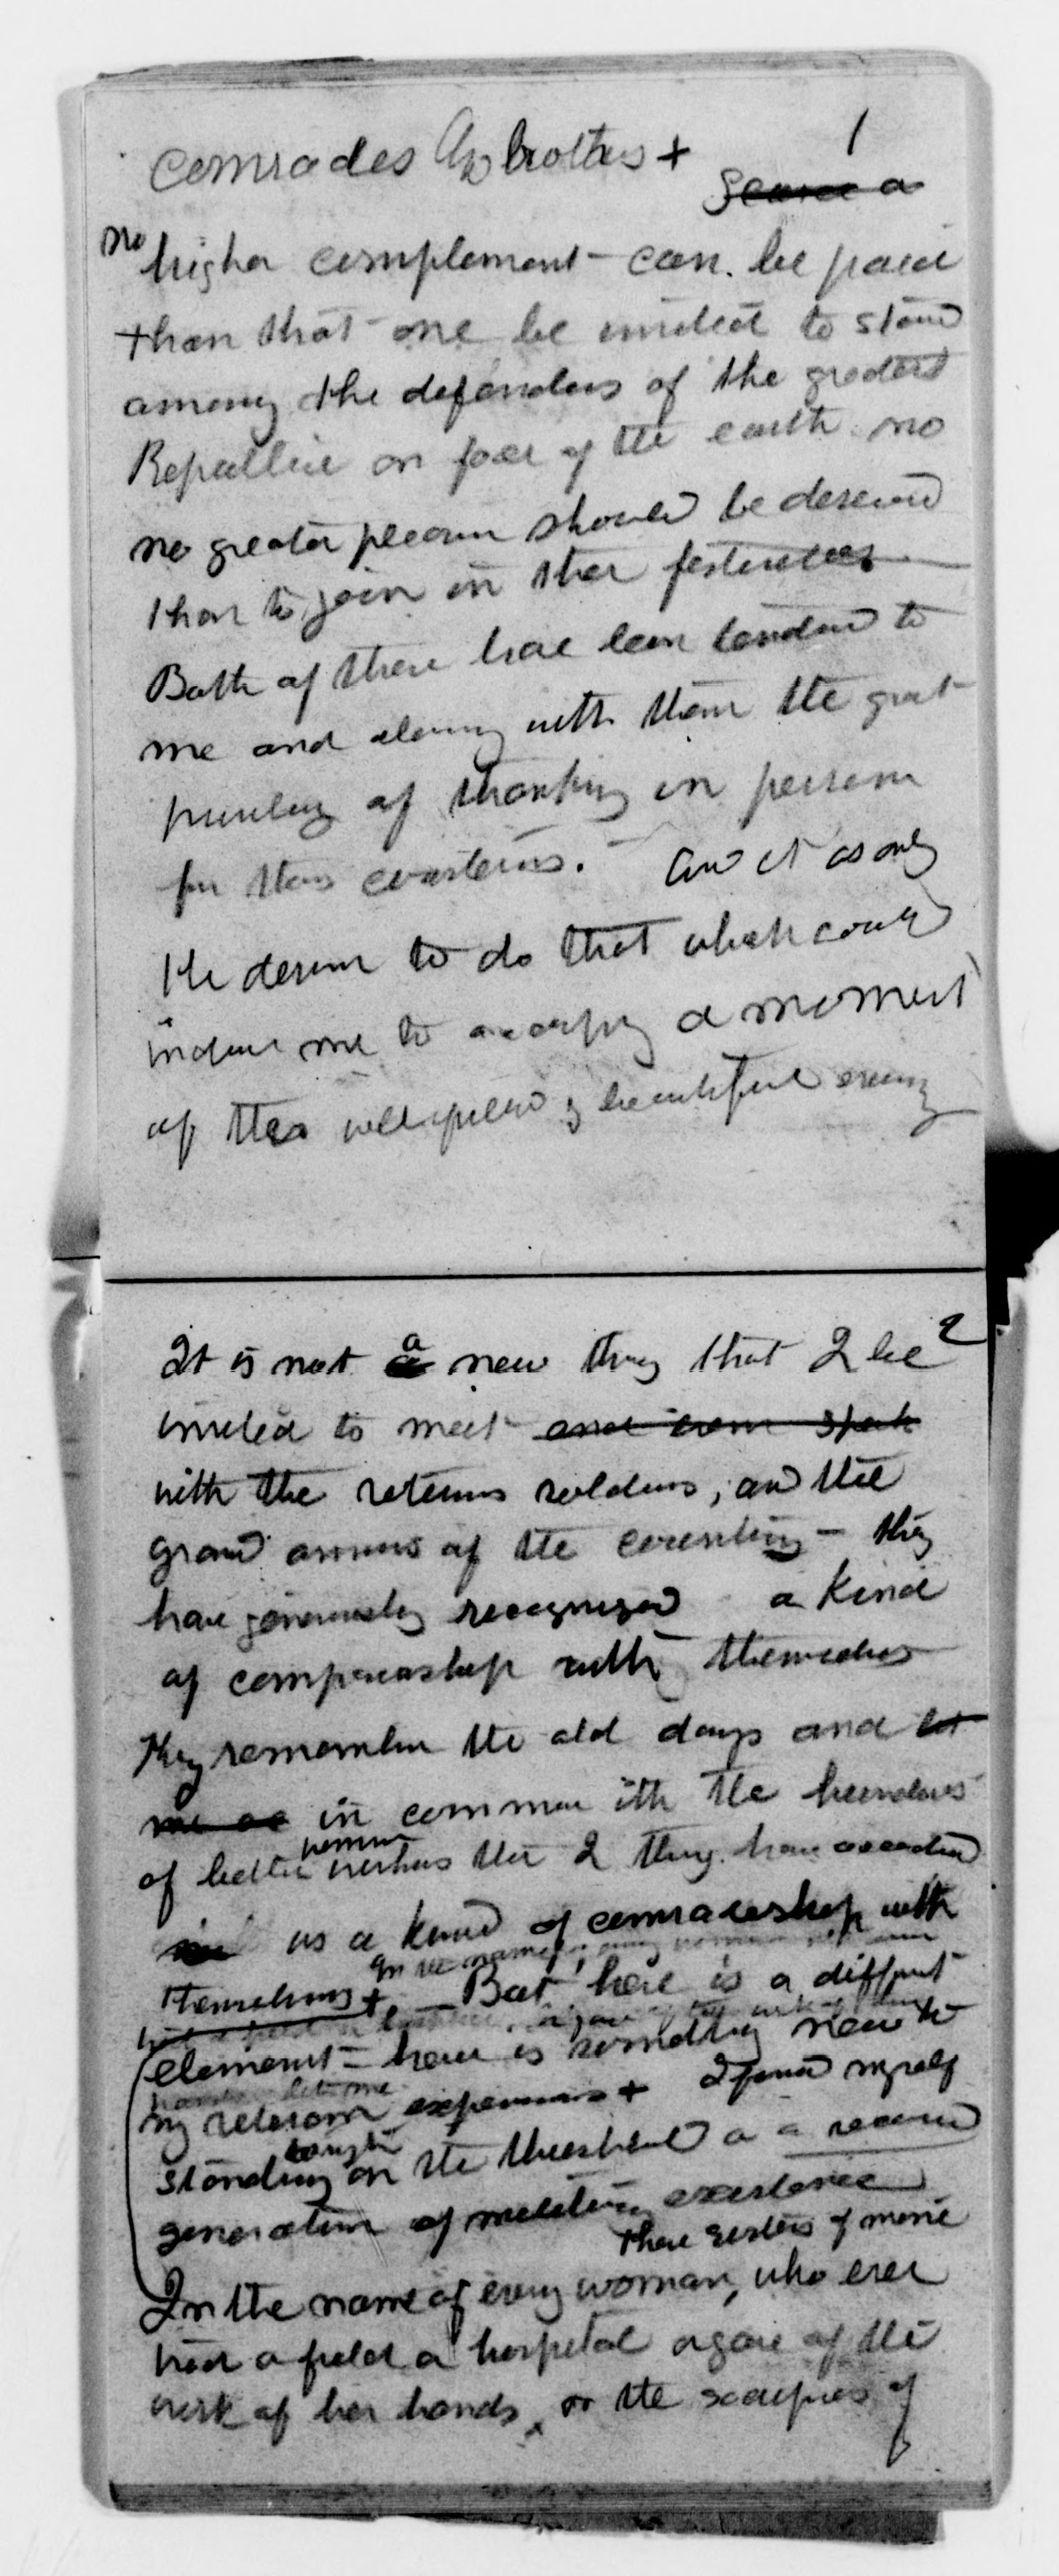 1
Comrades & brothers +
no higher complement - can. be paid
than that one be invited to stand
among the defenders of the greatest
Republic on face of the earth. no
no greater pleasure should be desired
than to join in their festivities
Both of these have been tendered to
me and along with them the great
privilege of thanking in person
for this courteous. - And it is only
the desire to do that which could
induce me to occupy a moment
of this well filled & beautiful evening
2
It is not a new thing that I be
invited to meet
with the veterans soldiers, and the
grand armies of the country - they
have generously recognized a kind
of companionship with themselves
They remember the old days and
in common with the hundreds
of better women workers than I they have accorded
us a kind of comradeship with
themselves + - But here is a different
element - here is something new to
my veteran experiences + I find myself
standing on the threshold of a second
generation of military existence
these sisters of mine
In the name of every woman, who ever
trod a field a hospital or gave of the
work of her hands, or the sacrifices of